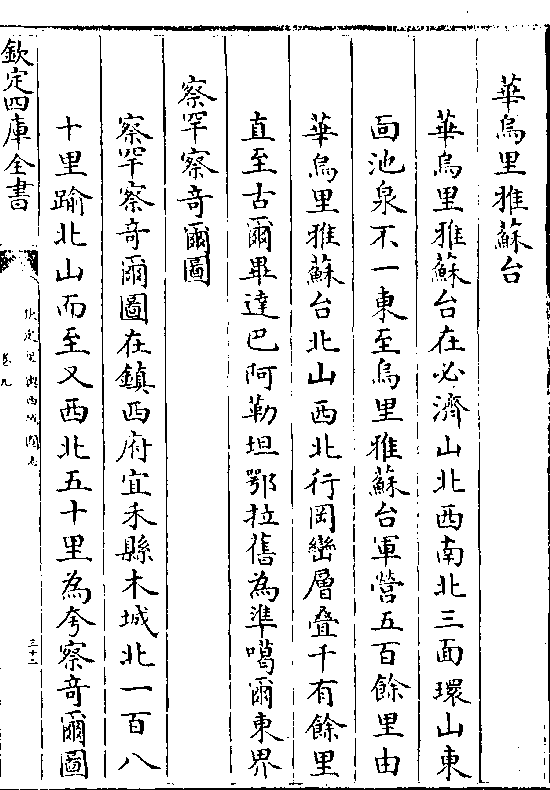 華烏里雅蘇台
華烏里雅蘇台在必濟山北西南北三面環山東
面池泉不一東至烏里雅蘇台軍營五百餘里由
華烏里雅蘇台北山西北行岡巒層疊千有餘里
直至古爾畢達巴阿勒坦鄂拉舊為準噶爾東界
察罕察奇爾圖
察罕察奇爾圖在鎮西府宜禾縣木城北一百八
十里踰北山而至又西北五十里為夸察奇爾圖
欽定四庫全書
欽定皇輿西域圖志
卷九
三十二